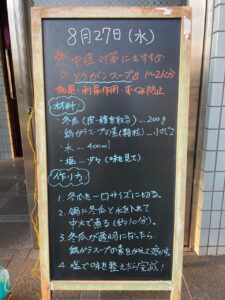 8月27日(水)
熱中症対策におすすめ
とうがんスープ 1〜2人分
効果・利尿作用・むくみ防止
材料:
・冬瓜(皮・種を取る)…200g
・鶏がらスープの素(顆粒)…小さじ
・水…400ml
・塩…少々(味を見て)
作り方
1. 冬瓜を一口サイズに切る。
2. 鍋に冬瓜と水を入れて
中火で煮る(約10分)。
3. 冬瓜が透明になったら
鶏がらスープの素を
4. 塩で味を整えたら完成!